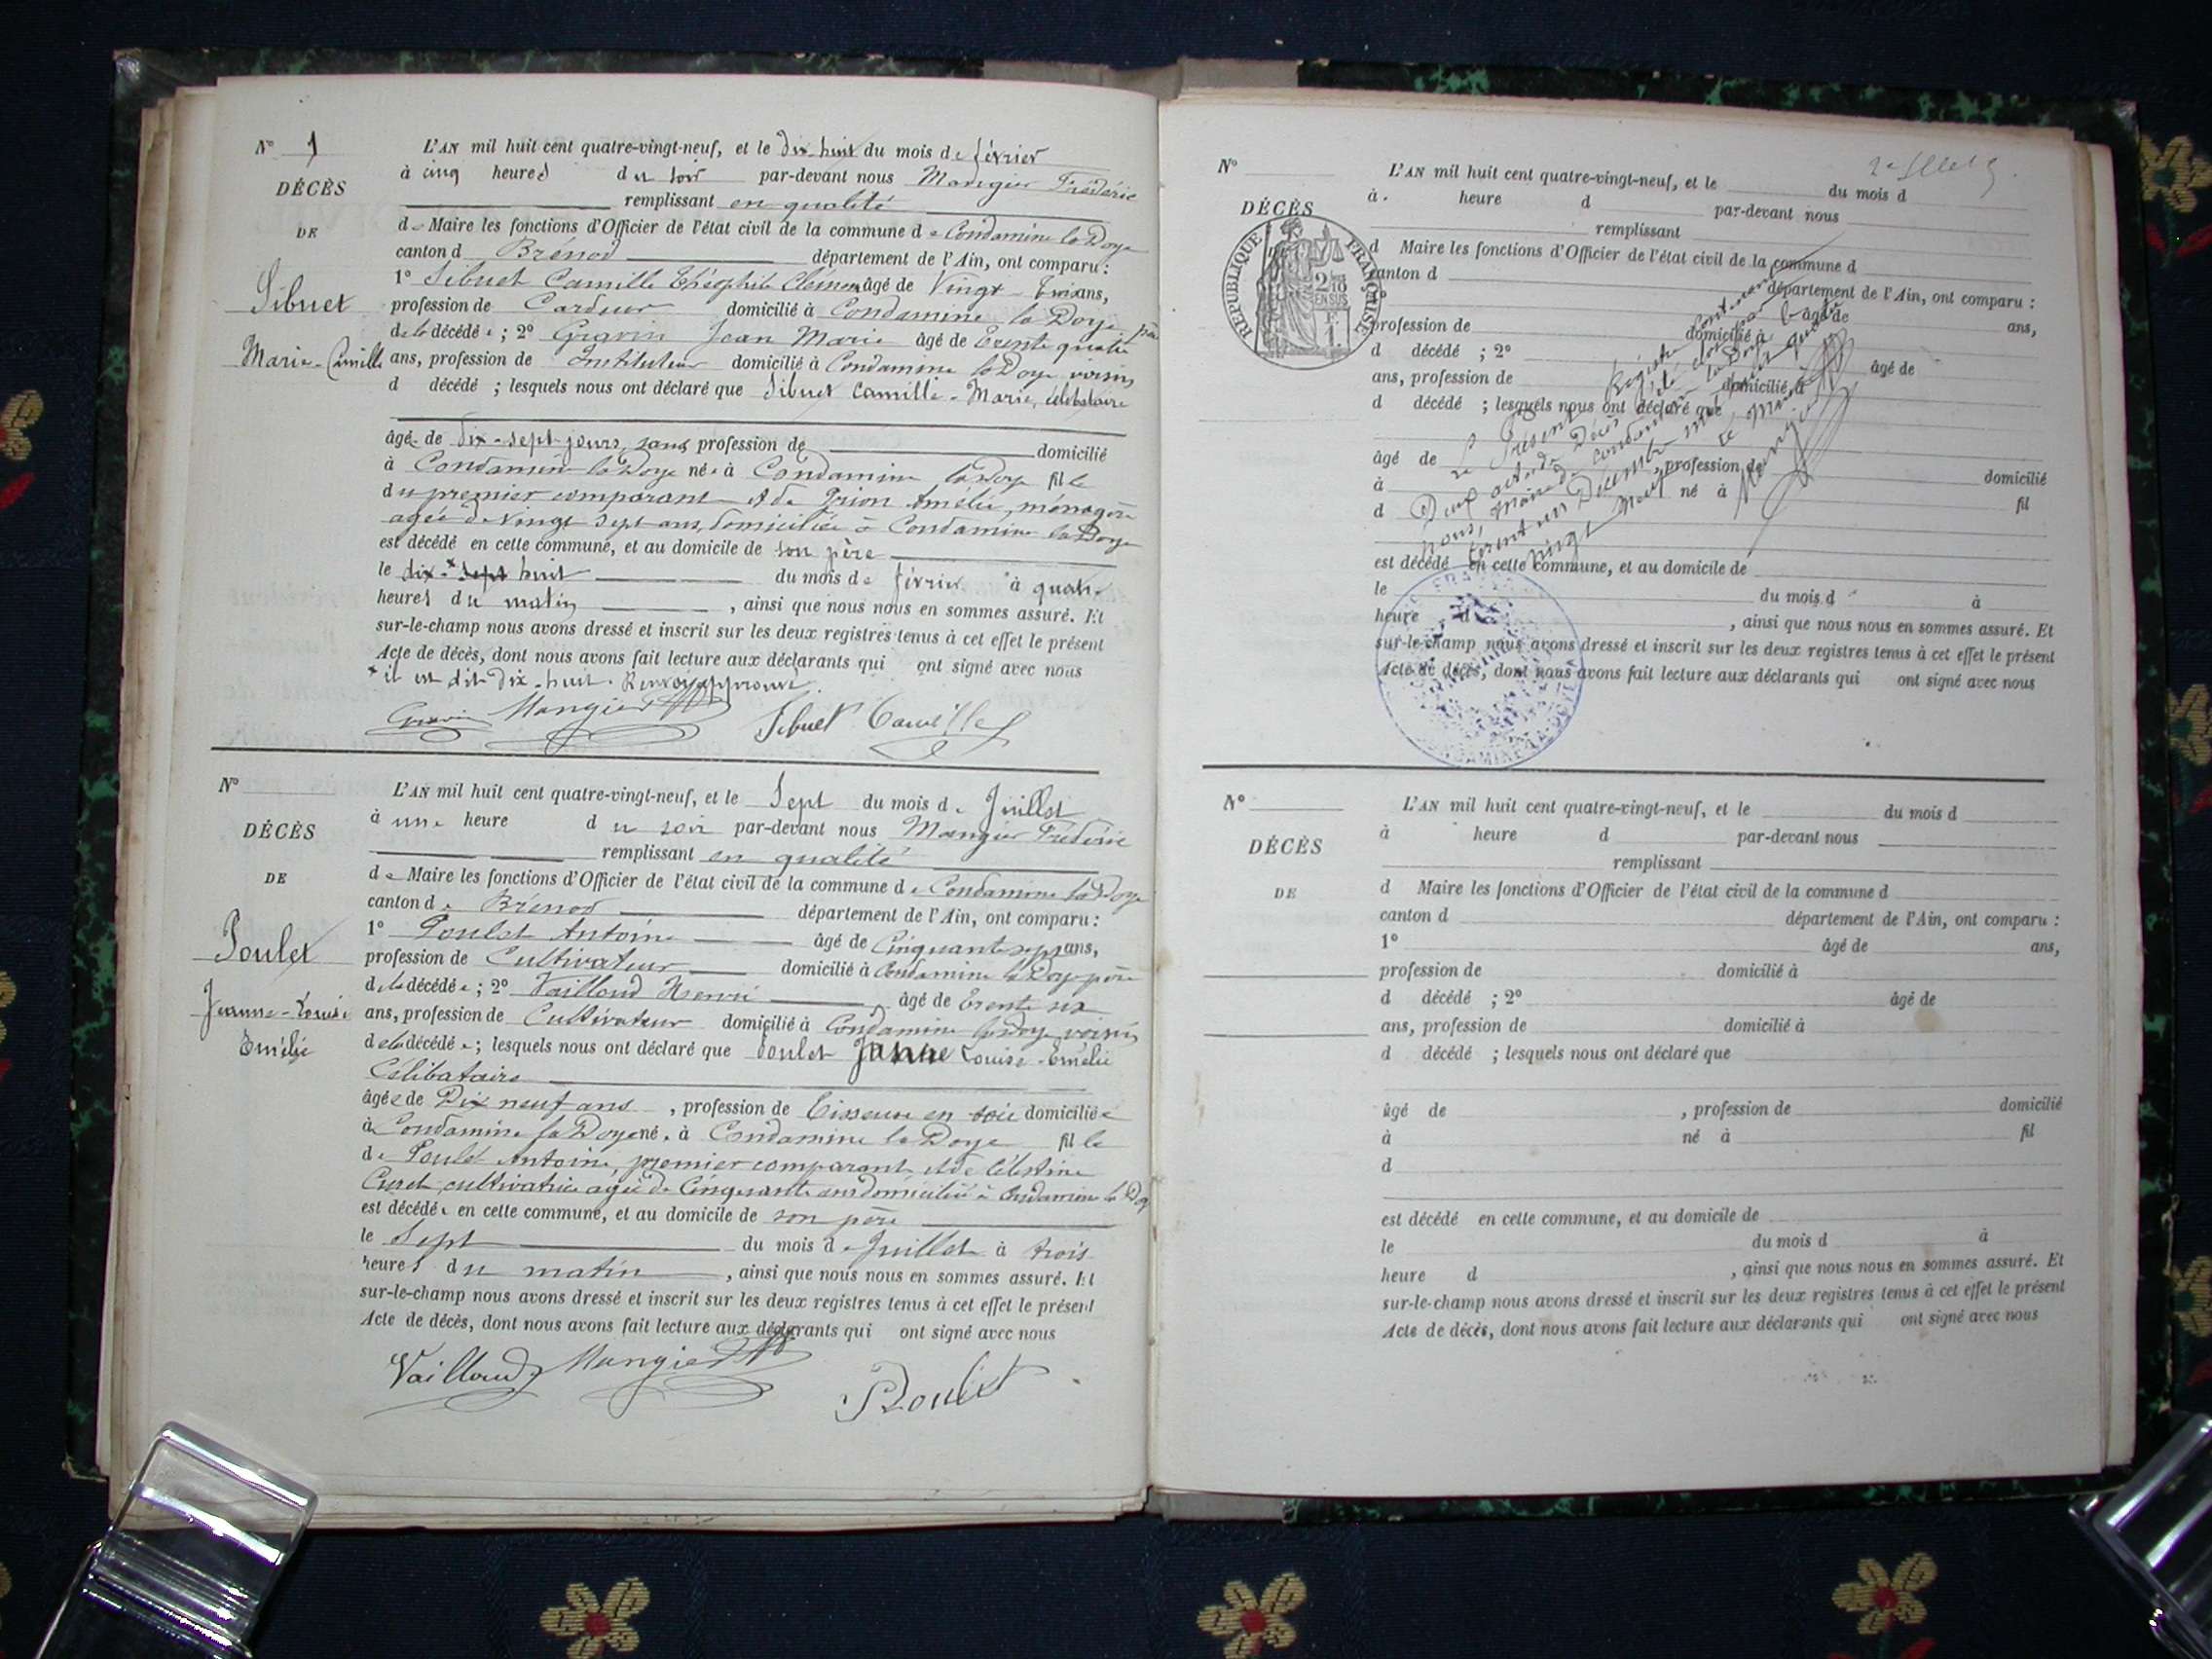 N° 1
DÉCÈS
DE
Sibuet
Marie-Camille
L'AN mil huit cent quatre-vingt-neuf, et le dix-huit du mois de février
à cinq heures du soir par-devant nous Mangier Frédéric
remplissant en qualité
de Maire les fonctions d'Officier de l'état civil de la commune de Condamine la Doye
canton d Brénod département de l'Ain, ont comparu :
1° Sibuet Camille Théophile Clément âgé de Vingt-trois ans,
profession de Cardeur domicilié à Condamine la Doye père
de la décédée ; 2° Gravin Jean Marie âgé de Trente quatre
ans, profession de Instituteur domicilié à Condamine la Doye voisin
d décédé ; lesquels nous ont déclaré que Sibuet Camille-Marie, célibataire
âgée de dix-sept jours, sans profession de domicilié
à Condamine la Doye née à Condamine la Doye fille
du premier comparant et de Amélie, ménagère
agée de Vingt sept ans, domiciliée à Condamine la Doye
est décédé en cette commune, et au domicile de son père
le dix-sept huit du mois de février à quatre
heures du matin , ainsi que nous nous en sommes assuré. Et
sur-le-champ nous avons dressé et inscrit sur les deux registres tenus à cet effet le présent
Acte de décès, dont nous avons fait lecture aux déclarants qui ont signé avec nous
× il est dit dix-huit. Renvoi approuvé.
Gravin Mangier Sibuet Camille
N°
DÉCÈS
DE
Poulet
Jeanne-Louise
Emélie
L'AN mil huit cent quatre-vingt-neuf, et le Sept du mois de Juillet
à une heure du soir par-devant nous Mangier Frédéric
remplissant en qualité
de Maire les fonctions d'Officier de l'état civil de la commune de Condamine la Doye
canton de Brénod département de l'Ain, ont comparu :
1° Poulet Antoine âgé de Cinquante sept ans,
profession de Cultivateur domicilié à Condamine la Doye père
de la décédée ; 2° Vailloud Henri âgé de Trente six
ans, profession de Cultivateur domicilié à Condamine la Doye voisin
de la décédée ; lesquels nous ont déclaré que Poulet Jeanne Louise-Emélie
Célibataire
âgée de Dix neuf ans , profession de Tisseuse en soie domiciliée
à Condamine la Doye née à Condamine la Doye fille
de Poulet Antoine, premier comparant et de Célestine
Curet, cultivatrice agée de Cinquante ans domiciliée à Condamine la Doy
est décédée en cette commune, et au domicile de son père
le Sept du mois de Juillet à trois
heures du matin , ainsi que nous nous en sommes assuré. Et
sur-le-champ nous avons dressé et inscrit sur les deux registres tenus à cet effet le présent
Acte de décès, dont nous avons fait lecture aux déclarants qui ont signé avec nous
Vailloud Mangier Poulet
N°
DÉCÈS
RÉPUBLIQUE FRANÇAISE
2/10 EN SUS
F. 1.
L'AN mil huit cent quatre-vingt-neuf, et le du mois d
à heure d par-devant nous
remplissant
d Maire les fonctions d'Officier de l'état civil de la commune d
canton d département de l'Ain, ont comparu :
âgé de ans,
profession de domicilié à
d décédé ; 2° âgé de
ans, profession de domicilié à
d décédé ; lesquels nous ont déclaré que
âgé de , profession de domicilié
à né à fil
d
est décédé en cette commune, et au domicile de
le du mois d à
heure d , ainsi que nous nous en sommes assuré. Et
sur-le-champ nous avons dressé et inscrit sur les deux registres tenus à cet effet le présent
Acte de décès, dont nous avons fait lecture aux déclarants qui ont signé avec nous
Le Présent Registre contenant
Deux actes de Décès a été clos par
nous, Maire de Condamine la Doye le
trent un Décembre mil huit cent quatre
vingt neuf
Le Maire
Mangier
N°
DÉCÈS
DE
L'AN mil huit cent quatre-vingt-neuf, et le du mois d
à heure d par-devant nous
remplissant
d Maire les fonctions d'Officier de l'état civil de la commune d
canton d département de l'Ain, ont comparu :
1° âgé de ans,
profession de domicilié à
d décédé ; 2° âgé de
ans, profession de domicilié à
d décédé ; lesquels nous ont déclaré que
âgé de , profession de domicilié
à né à fil
d
est décédé en cette commune, et au domicile de
le du mois d à
heure d , ainsi que nous nous en sommes assuré. Et
sur-le-champ nous avons dressé et inscrit sur les deux registres tenus à cet effet le présent
Acte de décès, dont nous avons fait lecture aux déclarants qui ont signé avec nous